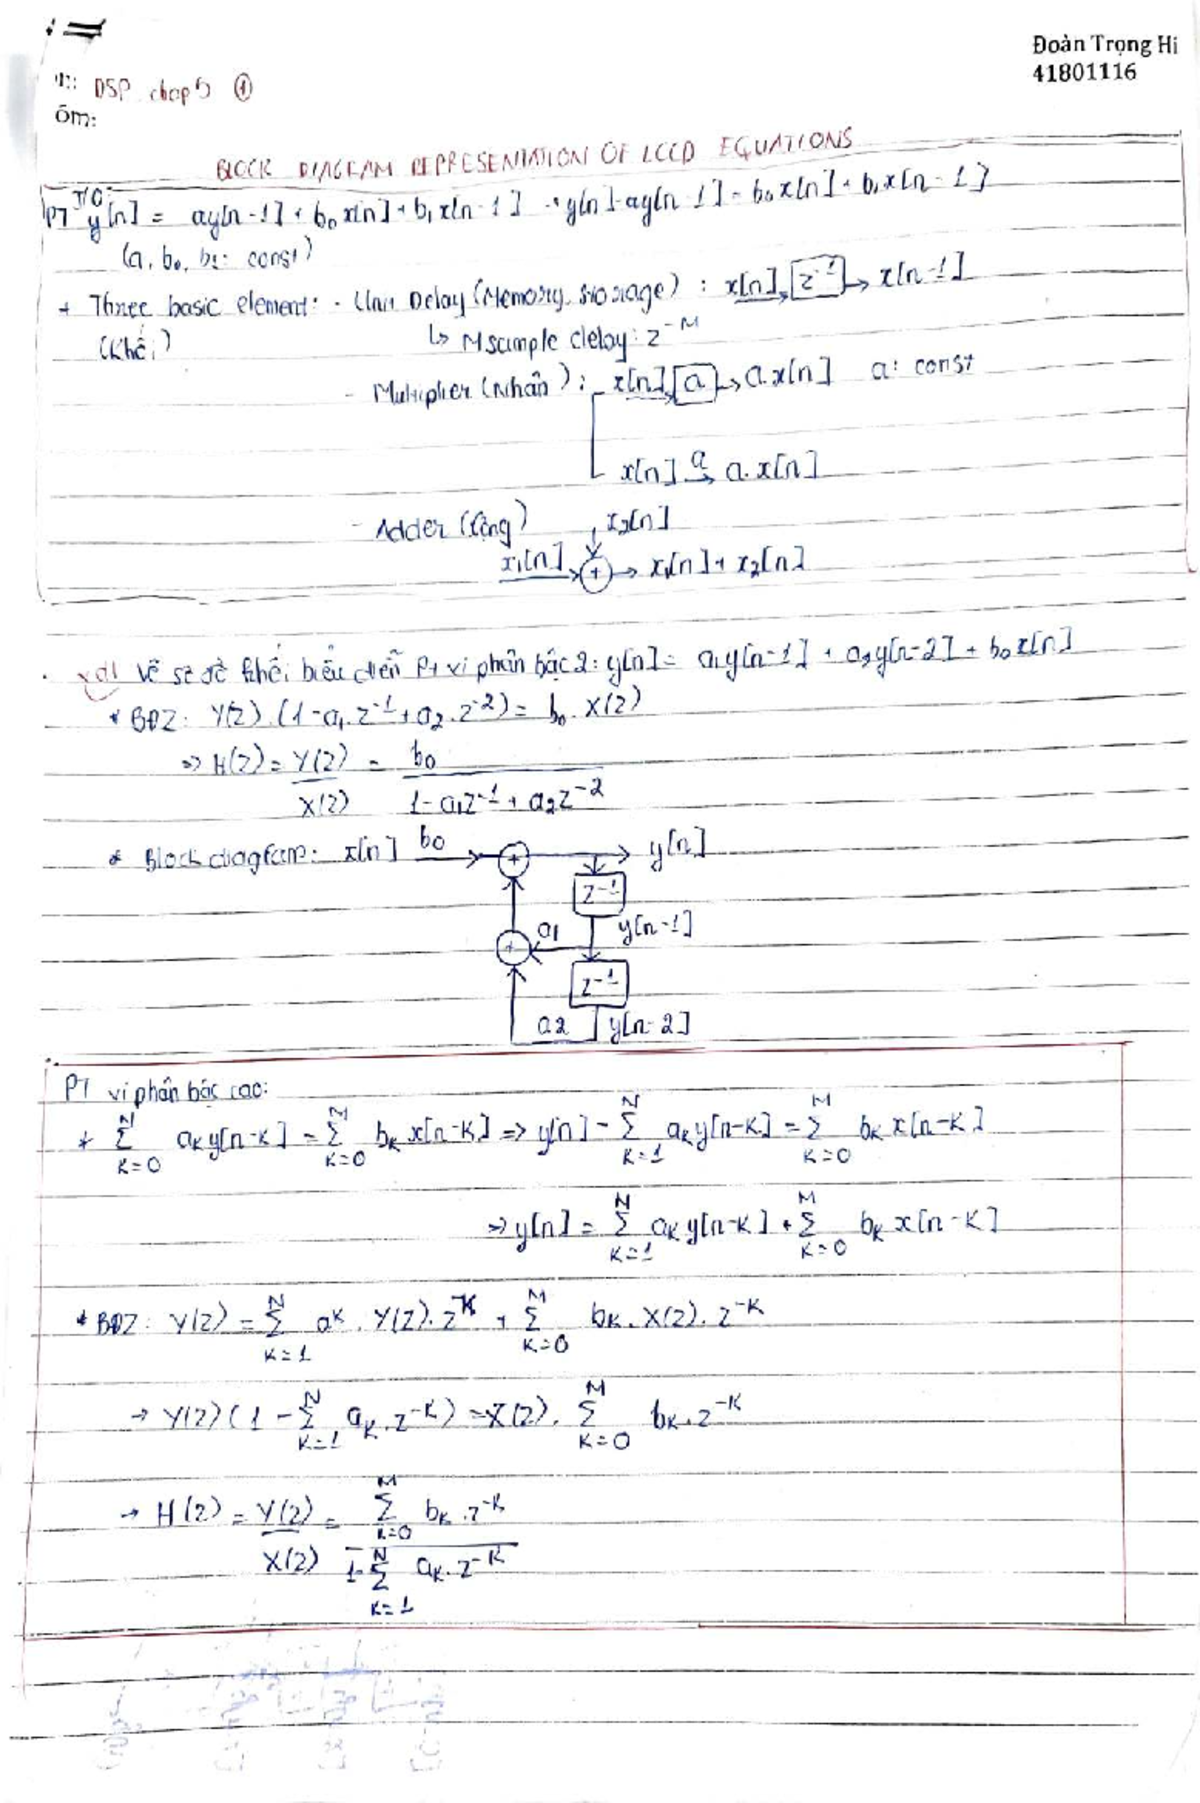 Đoàn Trọng Hi
41801116
DSP chap 5 ①
ōm:
BLOCK DIAGRAM REPRESENTATION OF LCCD EQUATIONS
PT y[n] = ay[n-1] + b₀x[n] + b₁x[n-1] → y[n] - ay[n-1] = b₀x[n] + b₁x[n-1]
(a, b₀, b₁: const)
+ Three basic element: - Unit Delay (Memory, storage) : x[n] → z⁻¹ → x[n-1]
(Khối) ↳ M sample delay: z⁻ᴹ
- Multiplier (Nhân): x[n] → a → a.x[n] a: const
x[n] a→ a.x[n]
- Adder (Cộng) x₂[n]
x₁[n] → + → x₁[n] + x₂[n]
Vd1 Vẽ sơ đồ khối biểu diễn Pt vi phân bậc 2: y[n] = a₁y[n-1] + a₂y[n-2] + b₀x[n]
* BĐZ: Y(z).(1-a₁.z⁻¹+a₂.z⁻²) = b₀.X(z)
⇒ H(z) = Y(z) = b₀
X(z) 1-a₁z⁻¹ + a₂z⁻²
* Block diagram: x[n] b₀ → + → y[n]
z⁻¹
+ a₁ y[n-1]
z⁻¹
a₂ y[n-2]
PT vi phân bậc cao:
* N∑k=0 aₖy[n-k] = M∑k=0 bₖx[n-k] ⇒ y[n] - N∑k=1 aₖy[n-k] = M∑k=0 bₖx[n-k]
⇒ y[n] = N∑k=1 aₖy[n-k] + M∑k=0 bₖx[n-k]
* BĐZ: Y(z) = N∑k=1 aᵏ.Y(z).z⁻ᵏ + M∑k=0 bₖ.X(z).z⁻ᵏ
→ Y(z)(1 - N∑k=1 aₖ.z⁻ᵏ) = X(z). M∑k=0 bₖ.z⁻ᵏ
→ H(z) = Y(z) = M∑k=0 bₖ.z⁻ᵏ
X(z) 1- N∑k=1 aₖ.z⁻ᵏ